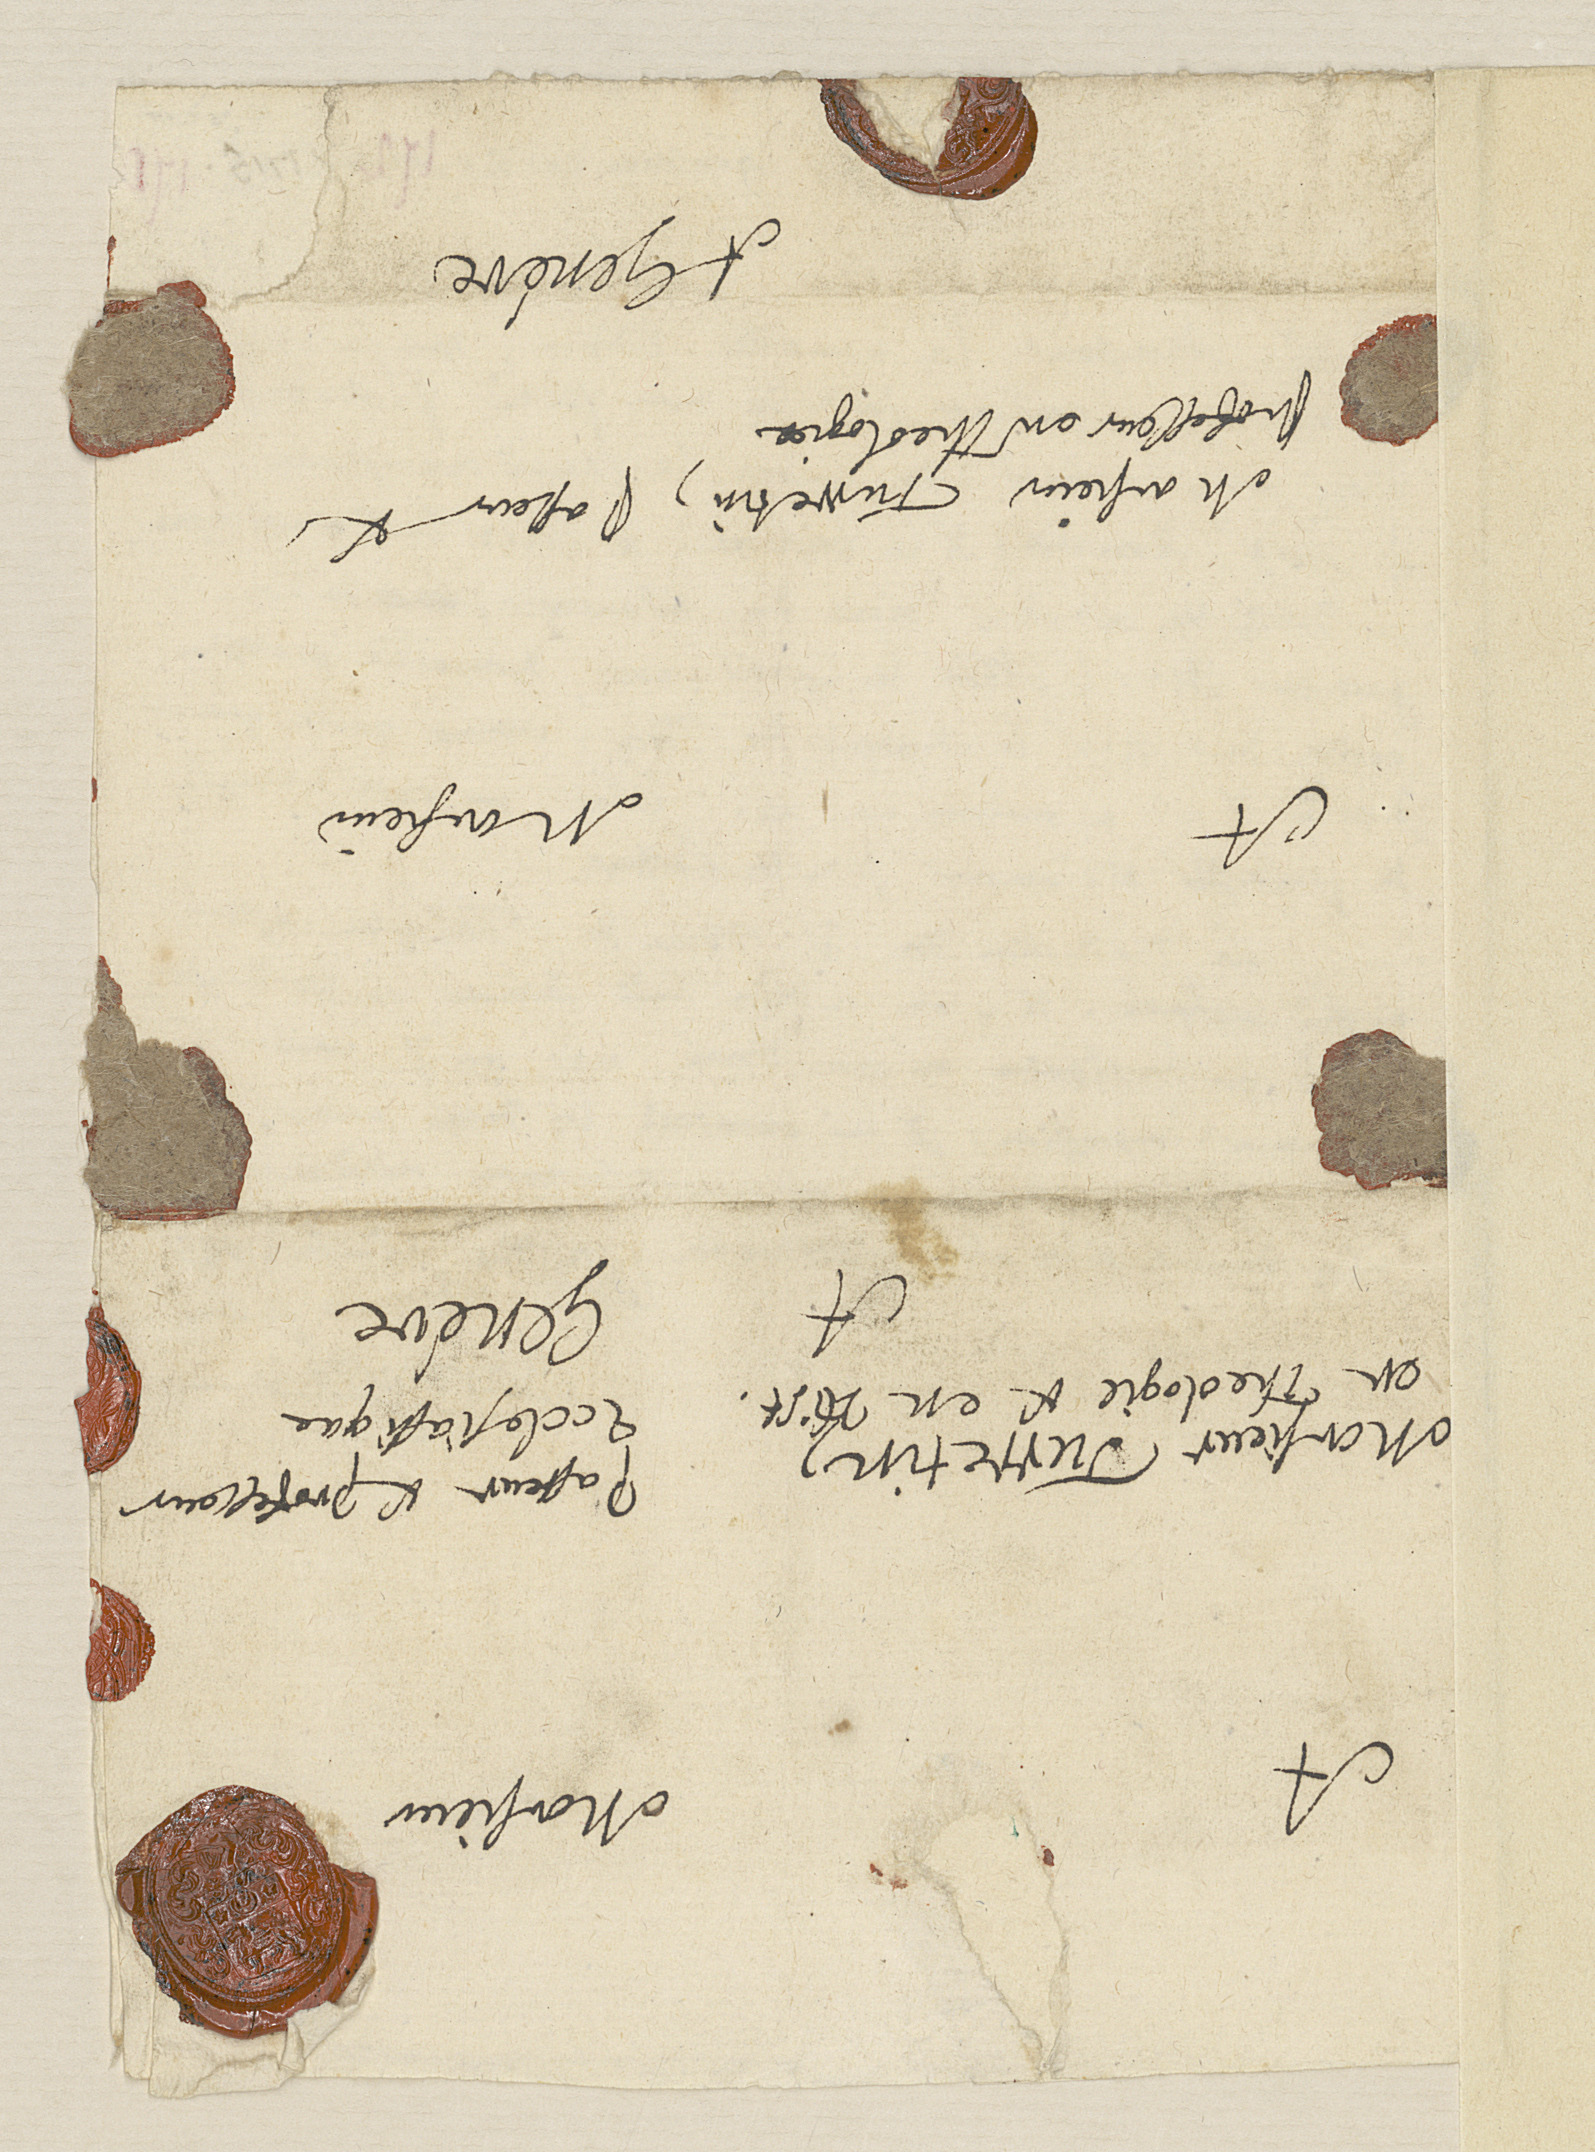 A Monsieur
Monsieur Turretin, Pasteur & professeur
en Theologie & en Hist. Ecclesiastique
A Geneve
A Monsieur
Monsieur Turretin, Pasteur &
professeur en Theologie
A Geneve